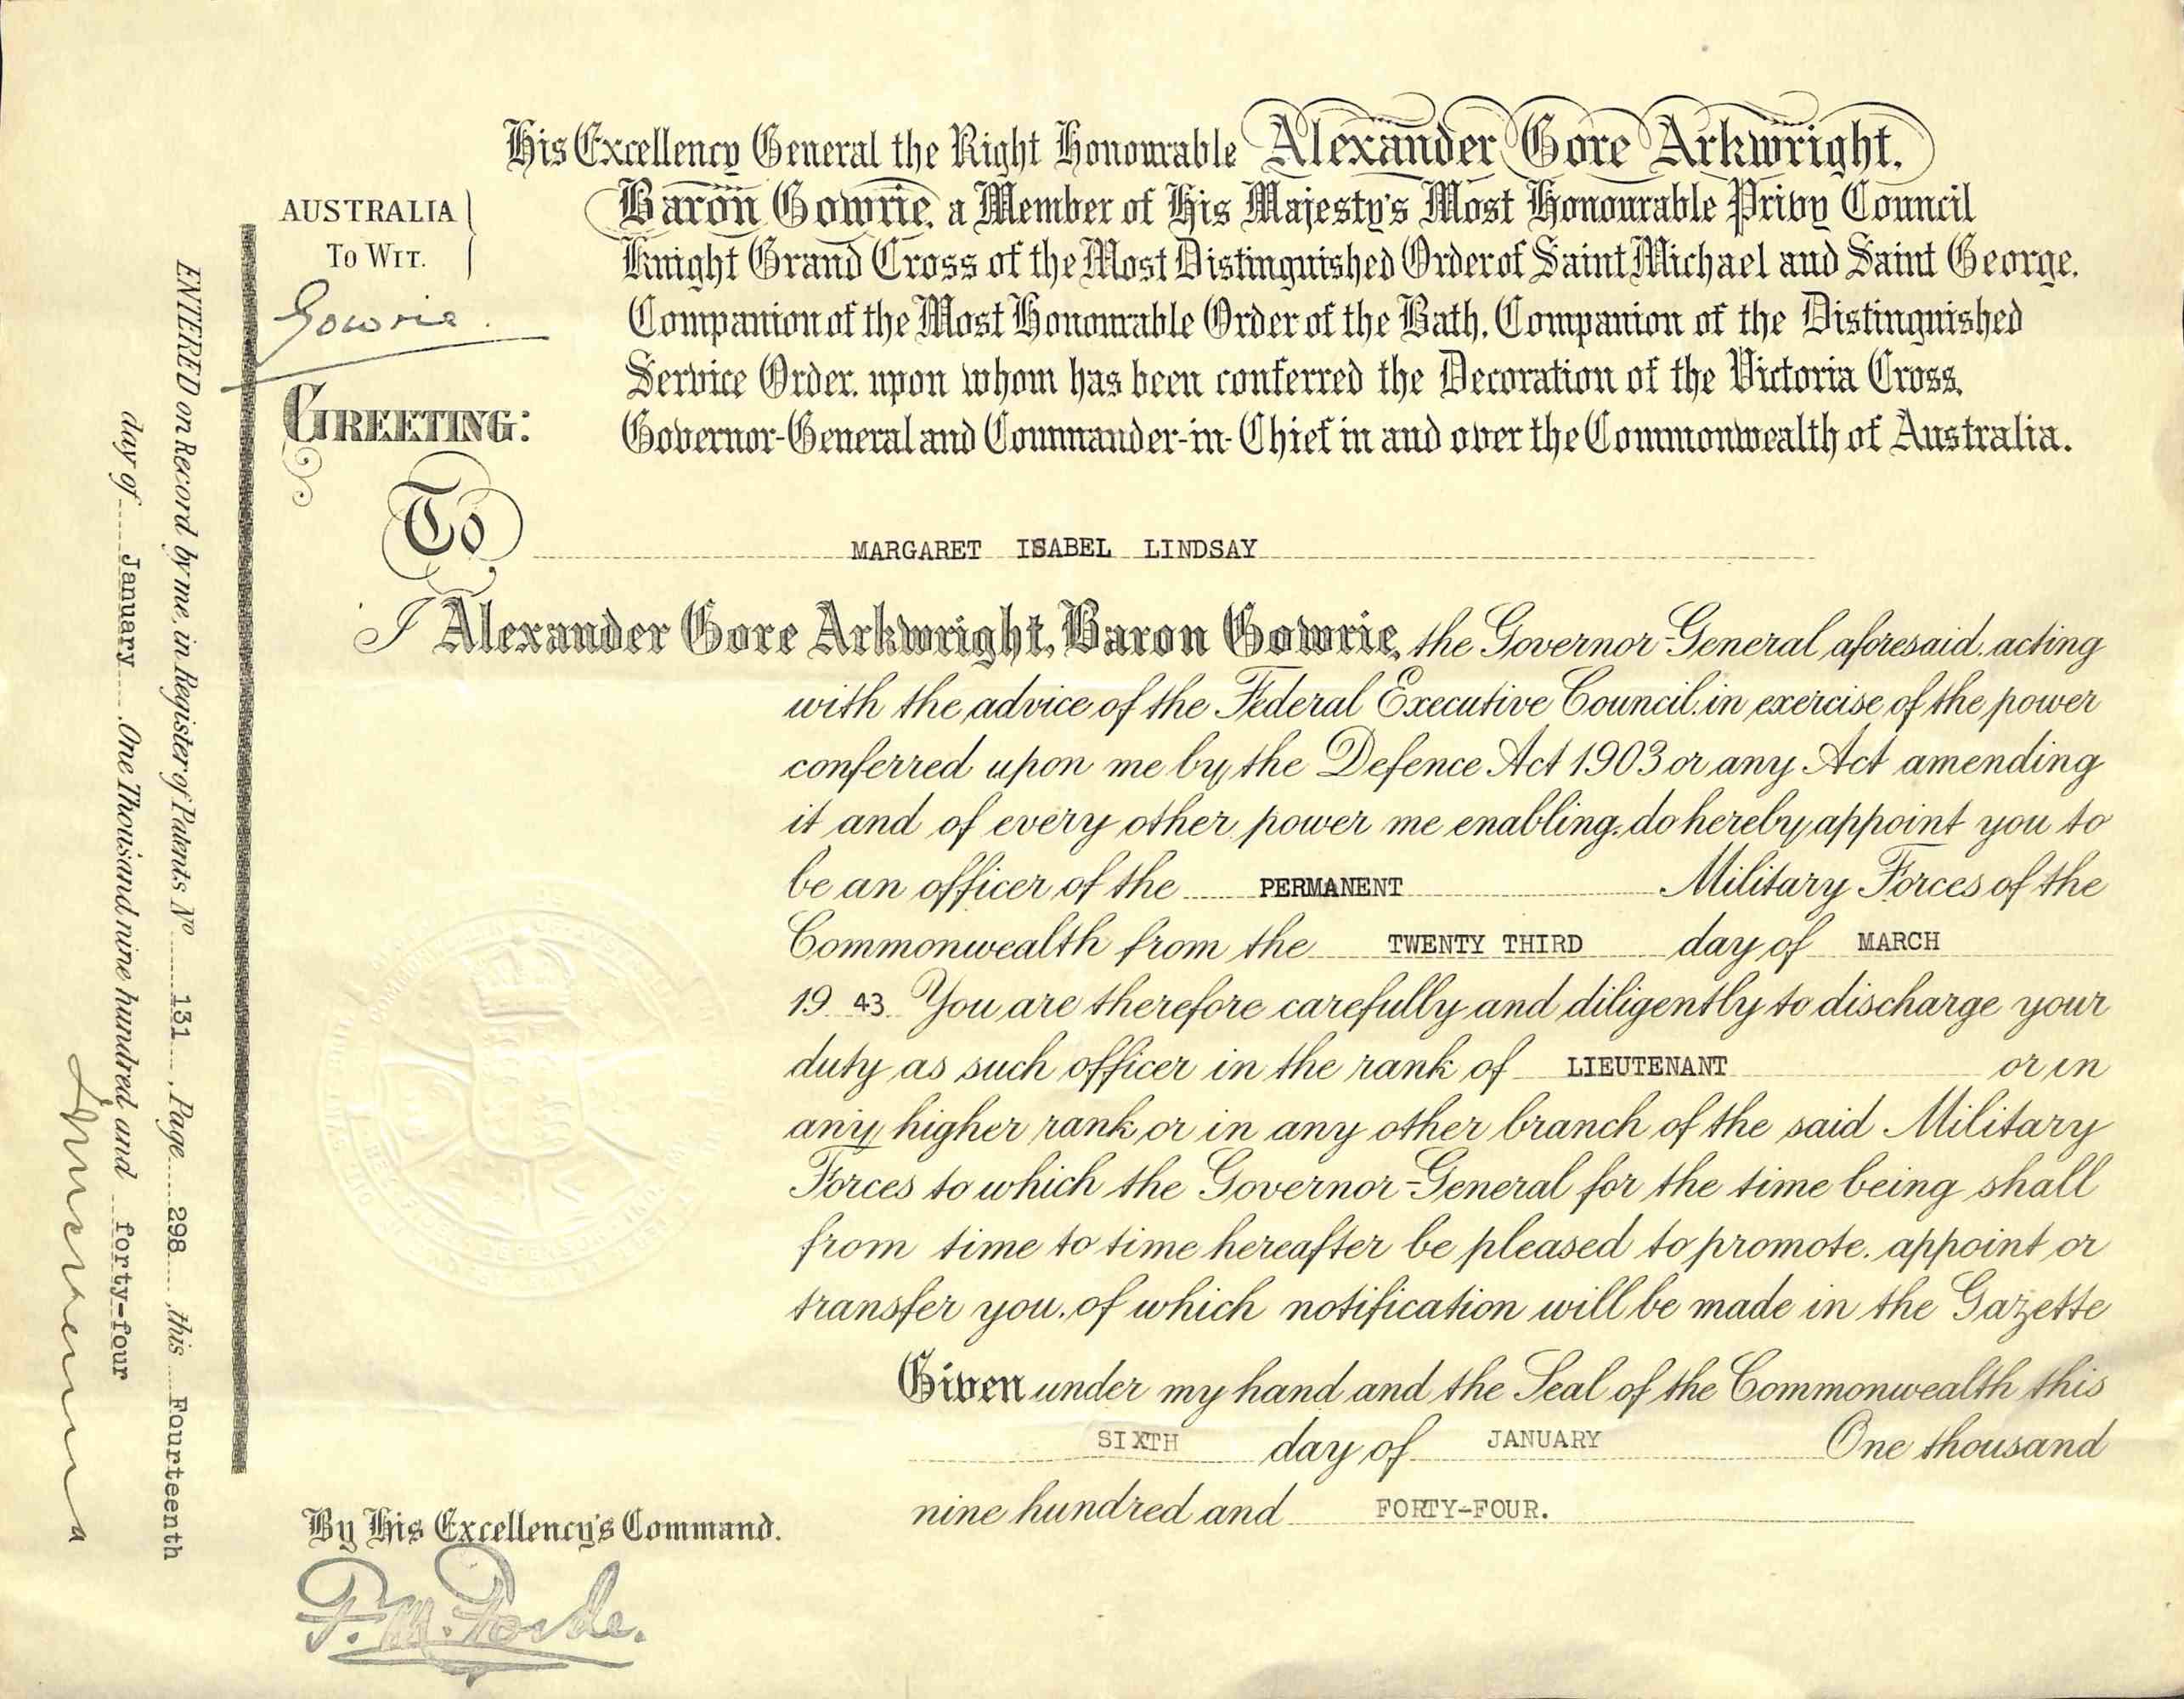 His Excellency General the Right Honourable Alexander Gore Arkwright,
Baron Gowrie, a Member of His Majesty's Most Honourable Privy Council
Knight Grand Cross of the Most Distinguished Order of Saint Michael and Saint George,
Companion of the Most Honourable Order of the Bath, Companion of the Distinguished
Service Order, upon whom has been conferred the Decoration of the Victoria Cross,
Governor-General and Commander-in-Chief in and over the Commonwealth of Australia.
AUSTRALIA
TO WIT.
Gowrie.
GREETING:
To MARGARET ISABEL LINDSAY
I Alexander Gore Arkwright, Baron Gowrie, the Governor-General aforesaid, acting
with the advice of the Federal Executive Council, in exercise of the power
conferred upon me by the Defence Act 1903 or any Act amending
it and of every other power me enabling, do hereby appoint you to
be an officer of the PERMANENT Military Forces of the
Commonwealth from the TWENTY THIRD day of MARCH
19 43 You are therefore carefully and diligently to discharge your
duty as such officer in the rank of LIEUTENANT or in
any higher rank or in any other branch of the said Military
Forces to which the Governor-General for the time being shall
from time to time hereafter be pleased to promote, appoint or
transfer you, of which notification will be made in the Gazette
Given under my hand and the Seal of the Commonwealth this
SIXTH day of JANUARY One thousand
nine hundred and FORTY-FOUR.
By His Excellency's Command.
F. M. Forde.
ENTERED on Record by me, in Register of Patents No 131, Page 298, this Fourteenth
day of January, One Thousand nine hundred and forty-four